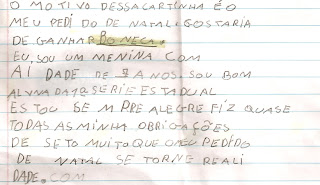 O MOTIVO DESSA CARTINHA É O
MEU PEDIDO DE NATAL. GOSTARIA
DE GANHAR BONECA.
EU, SOU UM MENINA COM
AI DADE DE 9 ANOS. SOU BOM
ALUNA DA 1ª SERIE ESTADUAL
ESTOU SEMPRE ALEGRE FIZ QUASE
TODAS AS MINHA OBRIGAÇÕES
DE SETO MUITO QUE O MEU PEDIDO
DE NATAL SE TORNE REALI
DADE. COM